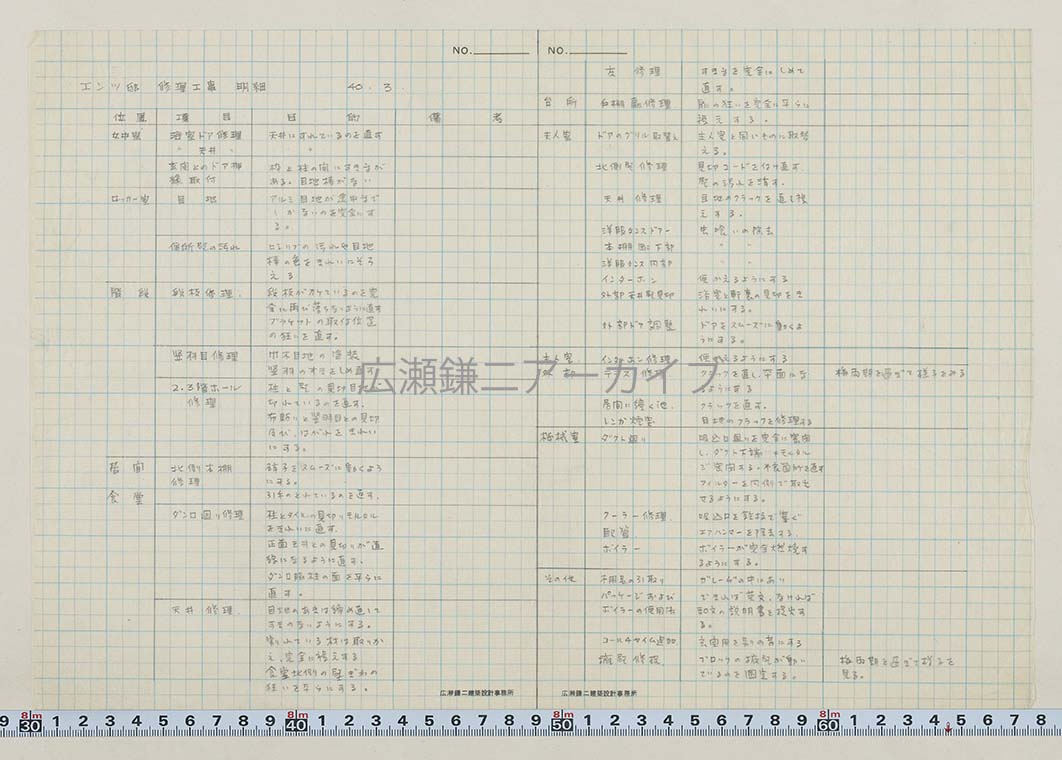 NO.
エンツ邸 修理工事 明細 40. 3.
位置 項目 目的 備考
女中室 浴室ドア修理 天井にすれているのを直す
〃 天井 〃 〃
玄関上のドア押 枠と柱の間にすきまが
縁取付 ある。目地棒がない
ロッカー室 目地 アルミ目地が途中まで
しかないのを完全にす
る。
便所壁の汚れ の汚れや目地
棒の色をきれいにそろ
える
階段 段板修理. 段板がカケているのを完
全に再び落ちないように直す
ブラケットの取付位置
の狂いを直す。
竪羽目修理 巾木目地の塗装
竪羽のオサをしめ直す
2.3階ホール 柱と壁の見切目地
修理 切れているのを直す.
布貼りと竪羽目との見切
はがれをきれい
にする。
居間 北側本棚 硝子をスムーズに動くよう
修理 にする。
食堂 引手のとれているのを直す.
ダンロ廻り修理 柱とタイルの見切りモルタル
をきれいに直す.
正面 との見切りが直
線になるように直す.
ダンロ脇柱の面を平らに
直す。
天井修理. 目地のあきは締め直して
すきのないようにする。
割れている材は取りか
え、完全に補えする
食堂北側の壁ぎわの
狂いを平らにする.
広瀬鎌二建築設計事務所
NO.
左 修理 すきまを完全にしめて
直す。
台所 右棚扉修理 扉の狂いを完全に平らに
する.
主人室 ドアのグリル取替え 主人室と同じものに取替
える。
北側壁修理 見切コードを付け直す.
壁の汚れを消す.
天井修理 目地のクラックを直し
えする.
洋服タンスドアー 虫喰いの除去
本棚 下部 〃 〃
洋服タンス内部
インターホン 使かえるようにする
外部天井壁見切 浴室と軒裏の見切をき
れいにする。
外部ドア調整 ドアをスムーズに動くよ
うにする。
主人室. インターホン修理 使かえるようにする
外部 テラス修理 クラックを直し、平面にな 梅雨期を過ぎて様子をみる
るようにする
居間に続く池. クラックを直す.
レンガ煙突 目地のクラックを修理する
機械室 ダクト廻り 吸込口廻りを完全に密閉
し、ダクト はモルタル
で密閉する.
フィルターを内側で取も
せるようにする。
クーラー修理. 吸込口を鉄板で塞ぐ
配管 エアハンマーを除去する.
ボイラー ボイラーが完全燃焼す
るようにする。
その他 不用品の引取り ガレージの中にあり
パッケージおよび できれば英文、なければ
ボイラーの使用法 和文の説明書を提出す
る。
コール4サイム追加. 玄関用を別の音にする
塀改修. ブロックの塀が動い 梅雨期を過ぎて様子を
ているのを固定する. 見る.
広瀬鎌二建築設計事務所
広瀬鎌二アーカイブ
9 8m 30 1 2 3 4 5 6 7 8 9 8m 40 1 2 3 4 5 6 7 8 9 8m 50 1 2 3 4 5 6 7 8 9 8m 60 1 2 3 4 5 6 7 8